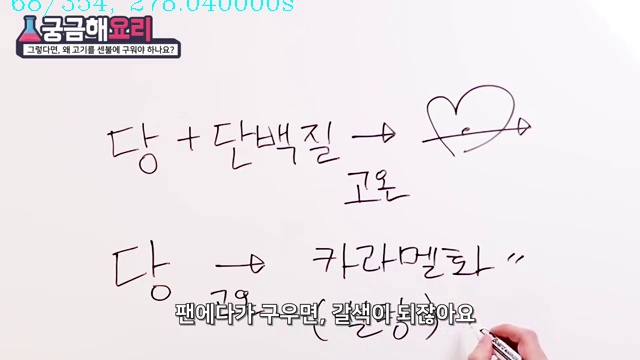 68/354, 278.040000s
궁금해요리
그렇다면, 왜 고기를 센불에 구워야 하나요?
당 + 단백질 →
고온
당 → 카라멜화 〃
고온
팬에다가 구우면, 갈색이 되잖아요